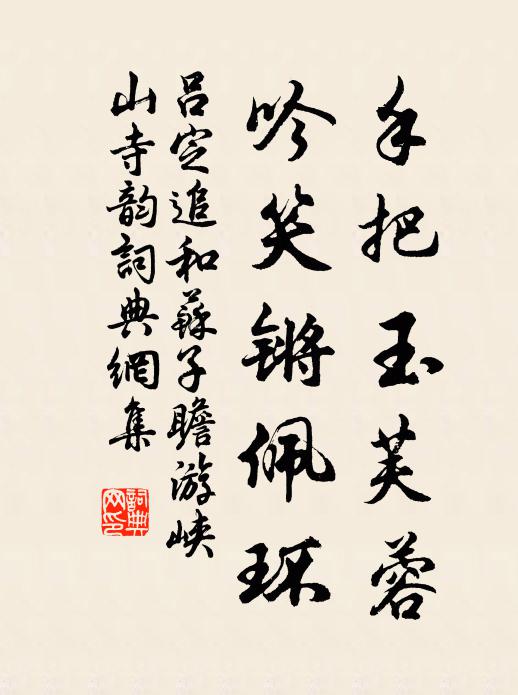 手把玉芙蓉
吟笑锵佩环
吕定追和蘇子瞻游峡
山寺韵詞典網集
詞典网印